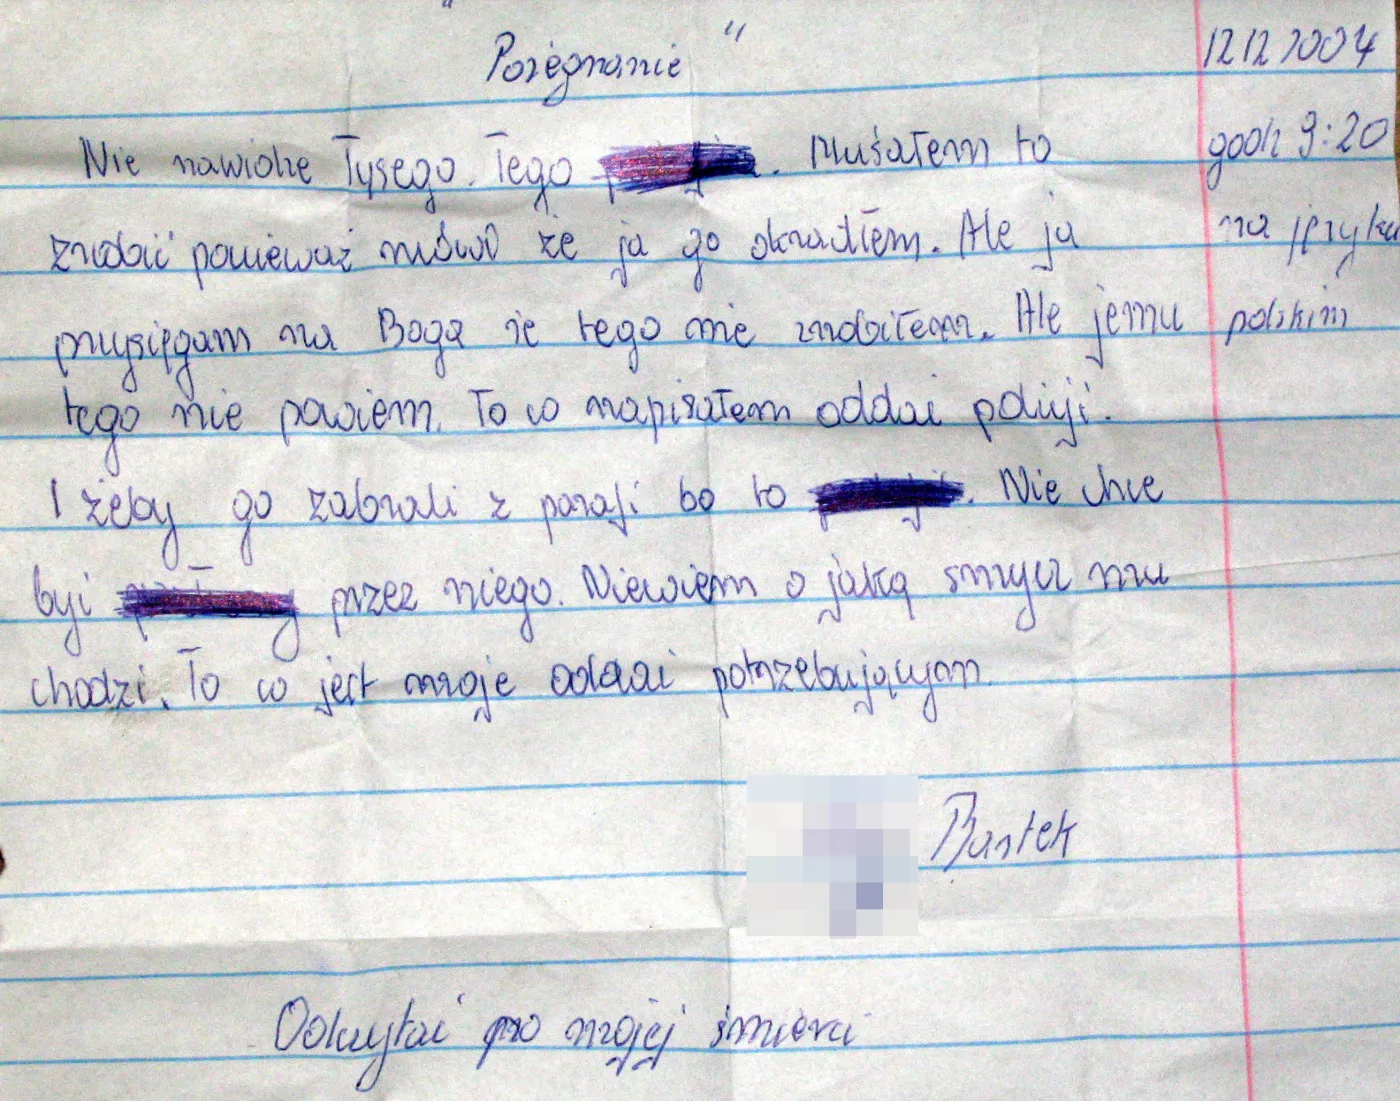 " Pożegnanie " 12 12 2004
Nie nawidze Łysego. Tego Musałem to godz 9:20
zrobić ponieważ mówił że ja go okradłem. Ale ja na języku
przysięgam na Boga że tego nie zrobiłem. Ale jemu polskim
tego nie powiem. To co napisałem oddać policji.
I żeby go zabrali z parafi bo to Nie chce
być przez niego. Niewiem o jaką smycz mu
chodzi. To co jest moje oddać potrzebującym.
Bartek
Odczytać po mojej śmierci